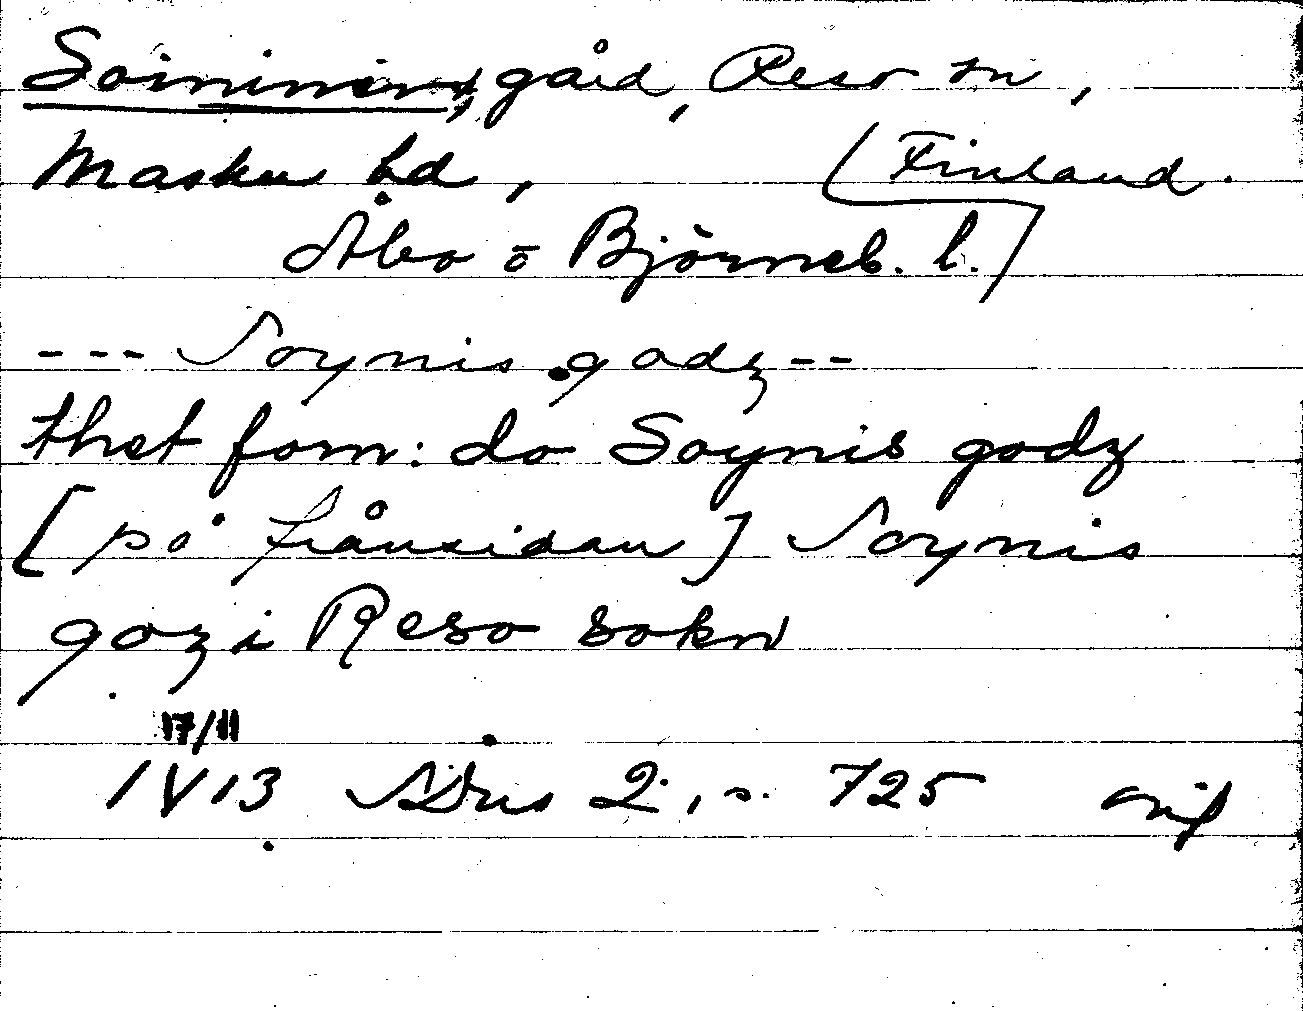 Soininen, gård, Reso sn,
Masku hd, (Finland.
Åbo o Björneb. l.)
--- Soynis godz --
thet forn: do Soynis godz
[på frånsidan] Soynis
goz i Reso sokn
17/11
1V13 SDns 2, s. 725